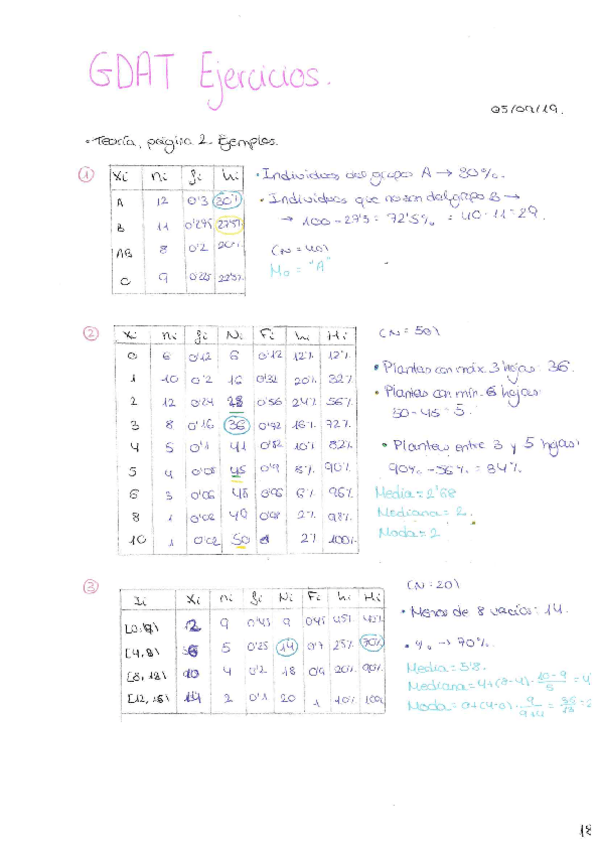 GDAT Ejercicios.
05/09/19.
• Teoría, página 2. Ejemplos.
①
xi ni fi hi
A 12 0'3 30%
B 11 0'275 27'5%
AB 8 0'2 20%
O 9 0'225 22'5%
• Individuos del grupo A → 30%.
• Individuos que no son del grupo B →
→ 100-27'5 = 72'5% = 40-11=29.
(N = 40)
Mo = "A"
②
xi ni fi Ni Fi hi Hi
0 6 0'12 6 0'12 12% 12%
1 10 0'2 16 0'32 20% 32%
2 12 0'24 28 0'56 24% 56%
3 8 0'16 36 0'72 16% 72%
4 5 0'1 41 0'82 10% 82%
5 4 0'08 45 0'9 8% 90%
6 3 0'06 48 0'96 6% 96%
8 1 0'02 49 0'98 2% 98%
10 1 0'02 50 1 2% 100%
(N = 50)
• Plantas con máx. 3 hojas: 36.
• Plantas con mín. 6 hojas:
50-45 = 5.
• Plantas entre 3 y 5 hojas:
90% -56% = 34%
Media = 2'68
Mediana = 2.
Moda = 2
③
Ii xi ni fi Ni Fi hi Hi
[0,4) 2 9 0'45 9 0'45 45% 45%
[4,8) 6 5 0'25 14 0'7 25% 70%
[8,12) 10 4 0'2 18 0'9 20% 90%
[12,16) 14 2 0'1 20 1 10% 100%
(N = 20)
• Menos de 8 vacíos: 14.
• % → 70%.
Media = 5'8.
Mediana = 4+(8-4)· 10-9/5 = 4
Moda = 0+(4-0)· 9/9+4 = 36/13 = 2
18